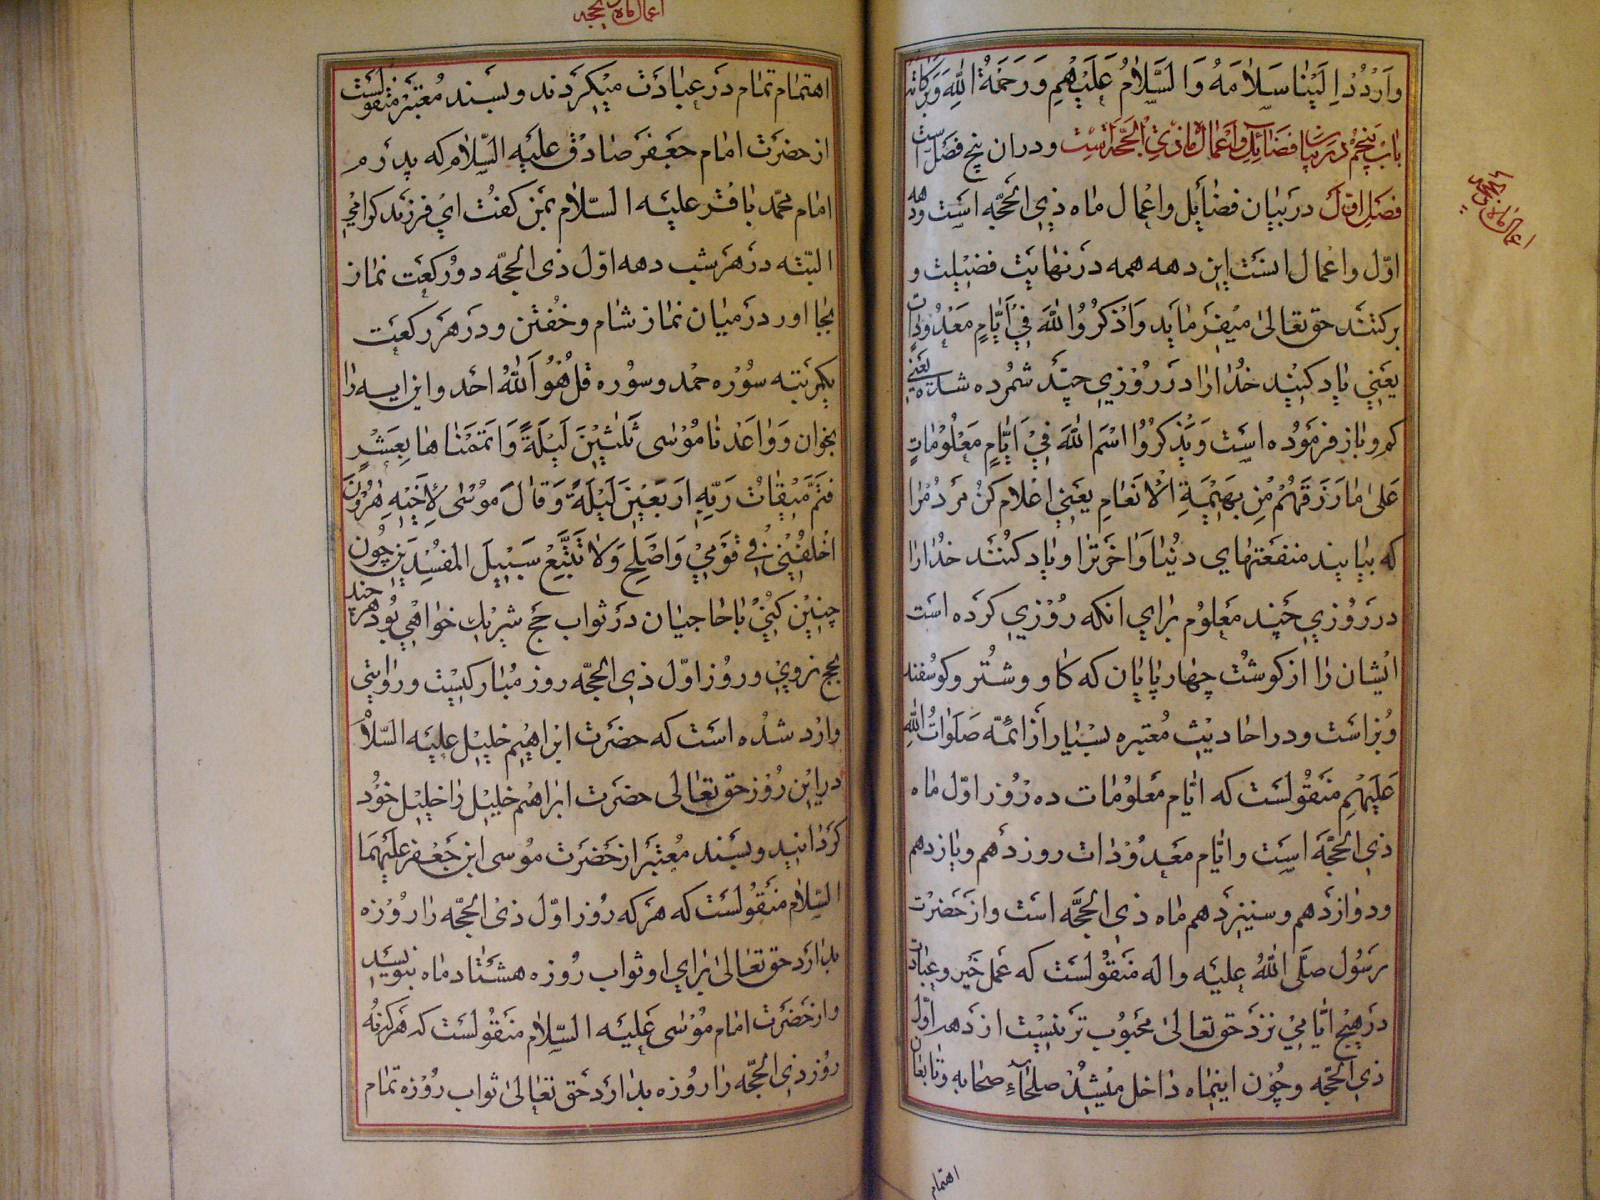 وَارْدُدْ اِلَیْنا سَلامَهُ وَالسَّلامُ عَلَیْهِمِ وَرَحْمَةُ اللّٰهِ وَبَرَکاتُهُ
باب پنجم در بیان فضائل و اعمال ماه ذی الحجّه است و در ان پنج فصل است
فصل اوّل در بیان فضایل و اعمال ماه ذی الحجّه است و دهه
اوّل و اعمال انست این دهه همه در نهایت فضیلت و
برکتند حق تعالی میفرماید وَاذْکُرُوا اللّٰهَ فِی اَیّامٍ مَعْدُوداتٍ
یعنی یاد کنید خدا را در روزی چند شمرده شده یعنی
کم و باز فرموده است وَیَذْکُرُوا اسْمَ اللّٰهِ فِی اَیّامٍ مَعْلُوماتٍ
عَلی ما رَزَقَهُمْ مِنْ بَهیمَةِ الْاَنْعامِ یعنی اعلام کن مردم را
که بیایند منفعتهای دنیا و اخرت را و یاد کنند خدا را
در روزی چند معلوم برای انکه روزی کرده است
ایشان را از کوشت چهارپایان که کاو و شتر و کوسفند
و بز است و در احادیث معتبره بسیار از ائمّه صلوات اللّٰه
علیهم منقولست که ایّام معلومات ده روز اوّل ماه
ذی الحجّه است و ایّام معدودات روز دهم و یازدهم
و دوازدهم و سیزدهم ماه ذی الحجّه است و از حضرت
رسول صلّی اللّٰه علیه و اله منقولست که عمل خیر و عبادت
در هیچ ایّامی نزد حق تعالی محبوب تر نیست از دهه اوّل
ذی الحجّه و چون اینماه داخل میشد صلحاء صحابه و تابعان
اهتمام
اعمال ماه ذیحجه
اهتمام تمام در عبادت میکردند و بسند معتبر منقولست
از حضرت امام جعفر صادق علیه السّلام که پدرم
امام محمّد باقر علیه السّلام بمن کفت ای فرزند کرامی
البتّه در هر شب دهه اوّل ذی الحجّه دو رکعت نماز
بجا اور در میان نماز شام و خفتن و در هر رکعت
یکمرتبه سوره حمد و سوره قُلْ هُوَ اللّٰهُ اَحَد و این ایه را
بخوان وَواعَدْنا مُوسی ثَلٰثینَ لَیْلَةً وَاَتْمَمْناها بِعَشْرٍ
فَتَمَّ میقاتُ رَبِّهِ اَرْبَعینَ لَیْلَةً وَقالَ مُوسی لِاَخیهِ هٰرُونَ
اخْلُفْنی فی قَوْمی وَاَصْلِحْ وَلا تَتَّبِعْ سَبیلَ الْمُفْسِدینَ چون
چنین کنی با حاجیان در ثواب حج شریک خواهی بود هر چند
بحج نروی و روز اوّل ذی الحجّه روز مبارکیست و روایتی
وارد شده است که حضرت ابراهیم خلیل علیه السّلام
در این روز حق تعالی حضرت ابراهیم خلیل را خلیل خود
کردانید و بسند معتبر از حضرت موسی ابن جعفر علیهما
السّلام منقولست که هر که روز اوّل ذی الحجّه را روزه
بدارد حق تعالی برای او ثواب روزه هشتاد ماه بنویسد
و از حضرت امام موسی علیه السّلام منقولست که هر که نه
روز ذی الحجّه را روزه بدارد حق تعالی ثواب روزه تمام